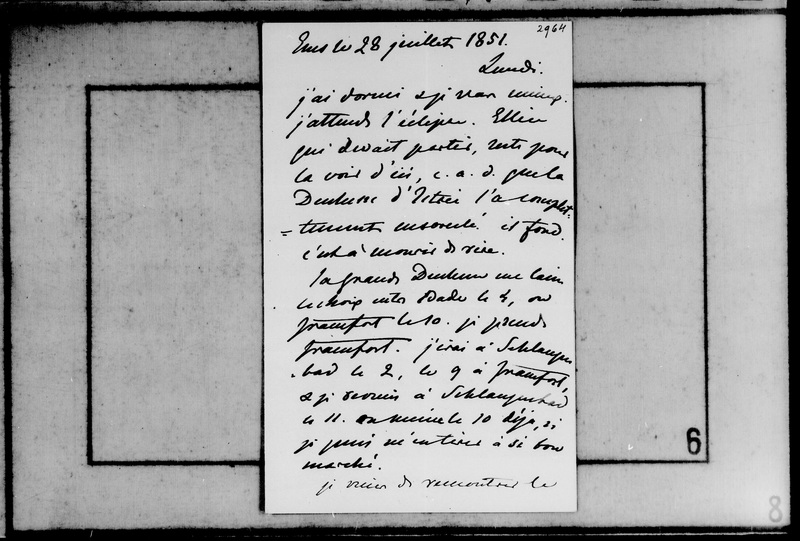 2964
Ems le 28 juillet 1851.
Lundi.
j'ai dormi & je vais mieux.
j'attends l'éclipse. Ellice
qui devait partir, reste pour
la voir d'ici, c. a. d. que la
Duchesse d'Istrie l'a complet-
=tement ensorcelé. il fond.
c'est à mourir de rire.
la grande Duchesse me laisse
le choix entre Bade le 4, ou
francfort le 10. je prends
francfort. j'irai à Schlangen
-bad le 2, le 9 à francfort,
& je reviens à Schlangenbad
le 11. ou même le 10 déjà, si
je puis m'en tirer à si bon
marché.
je viens de rencontrer le
6
8